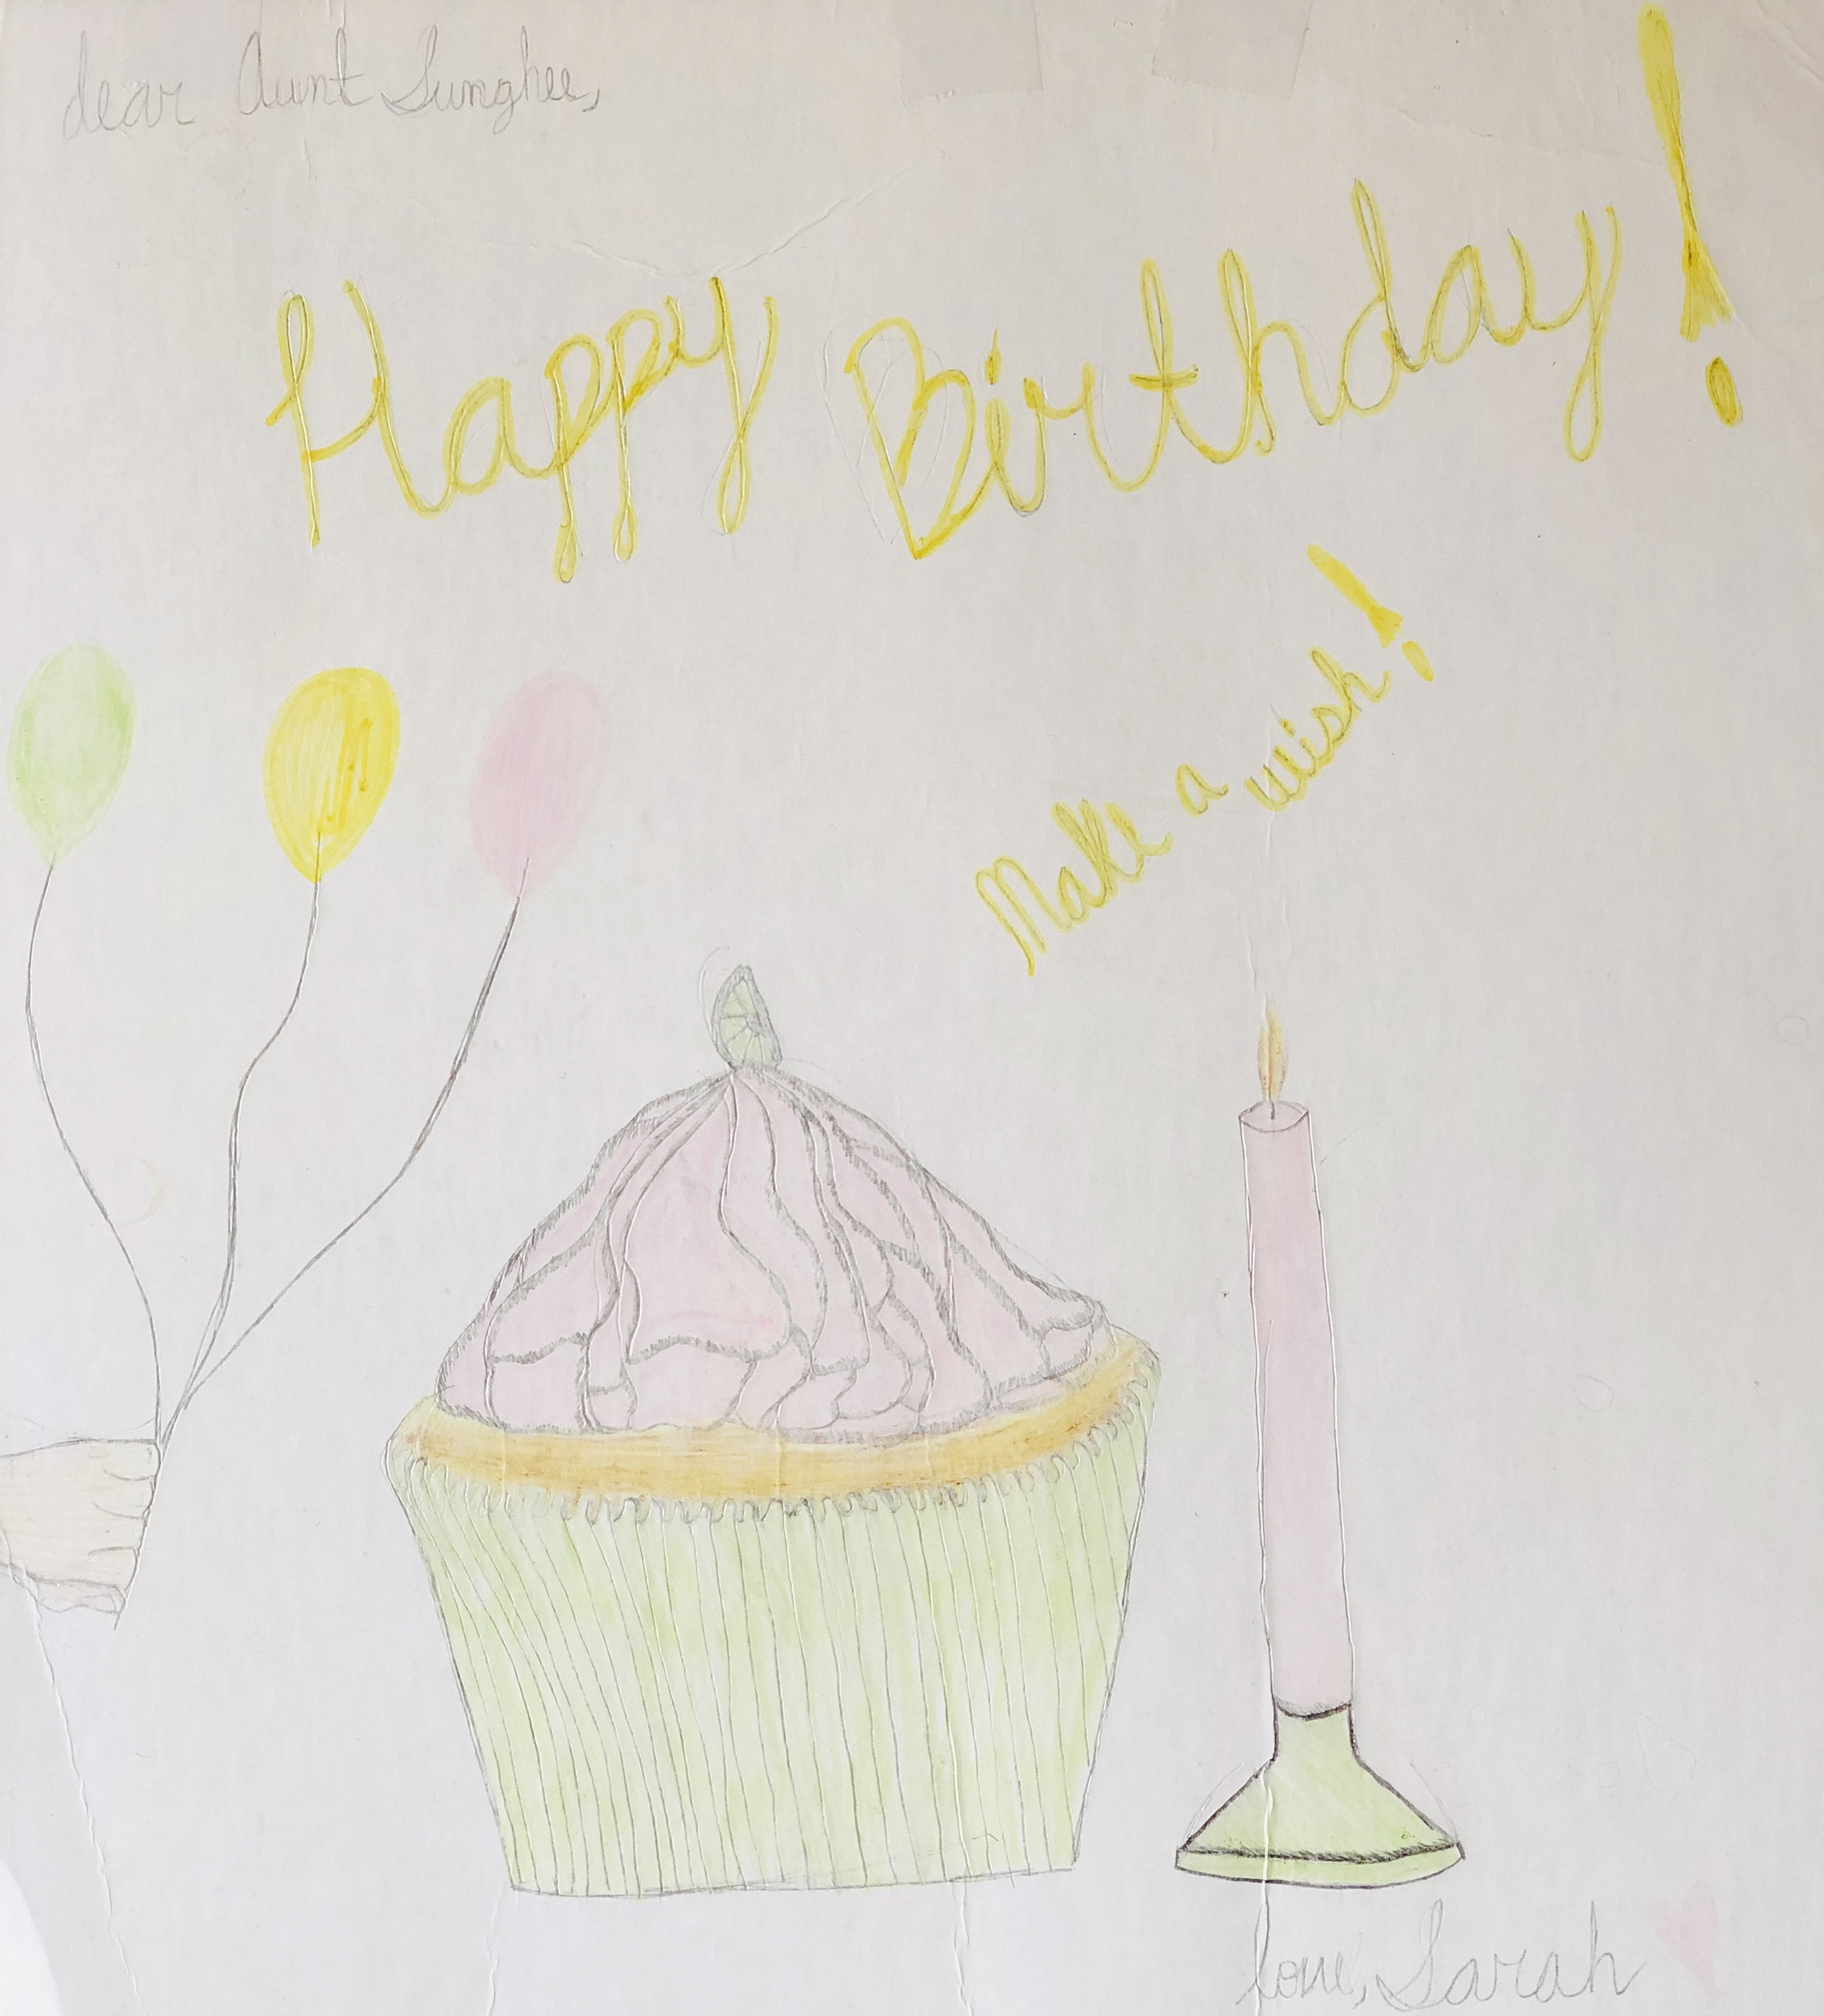 dear Aunt Sunghee,
Happy Birthday!
Make a wish!
love, Sarah